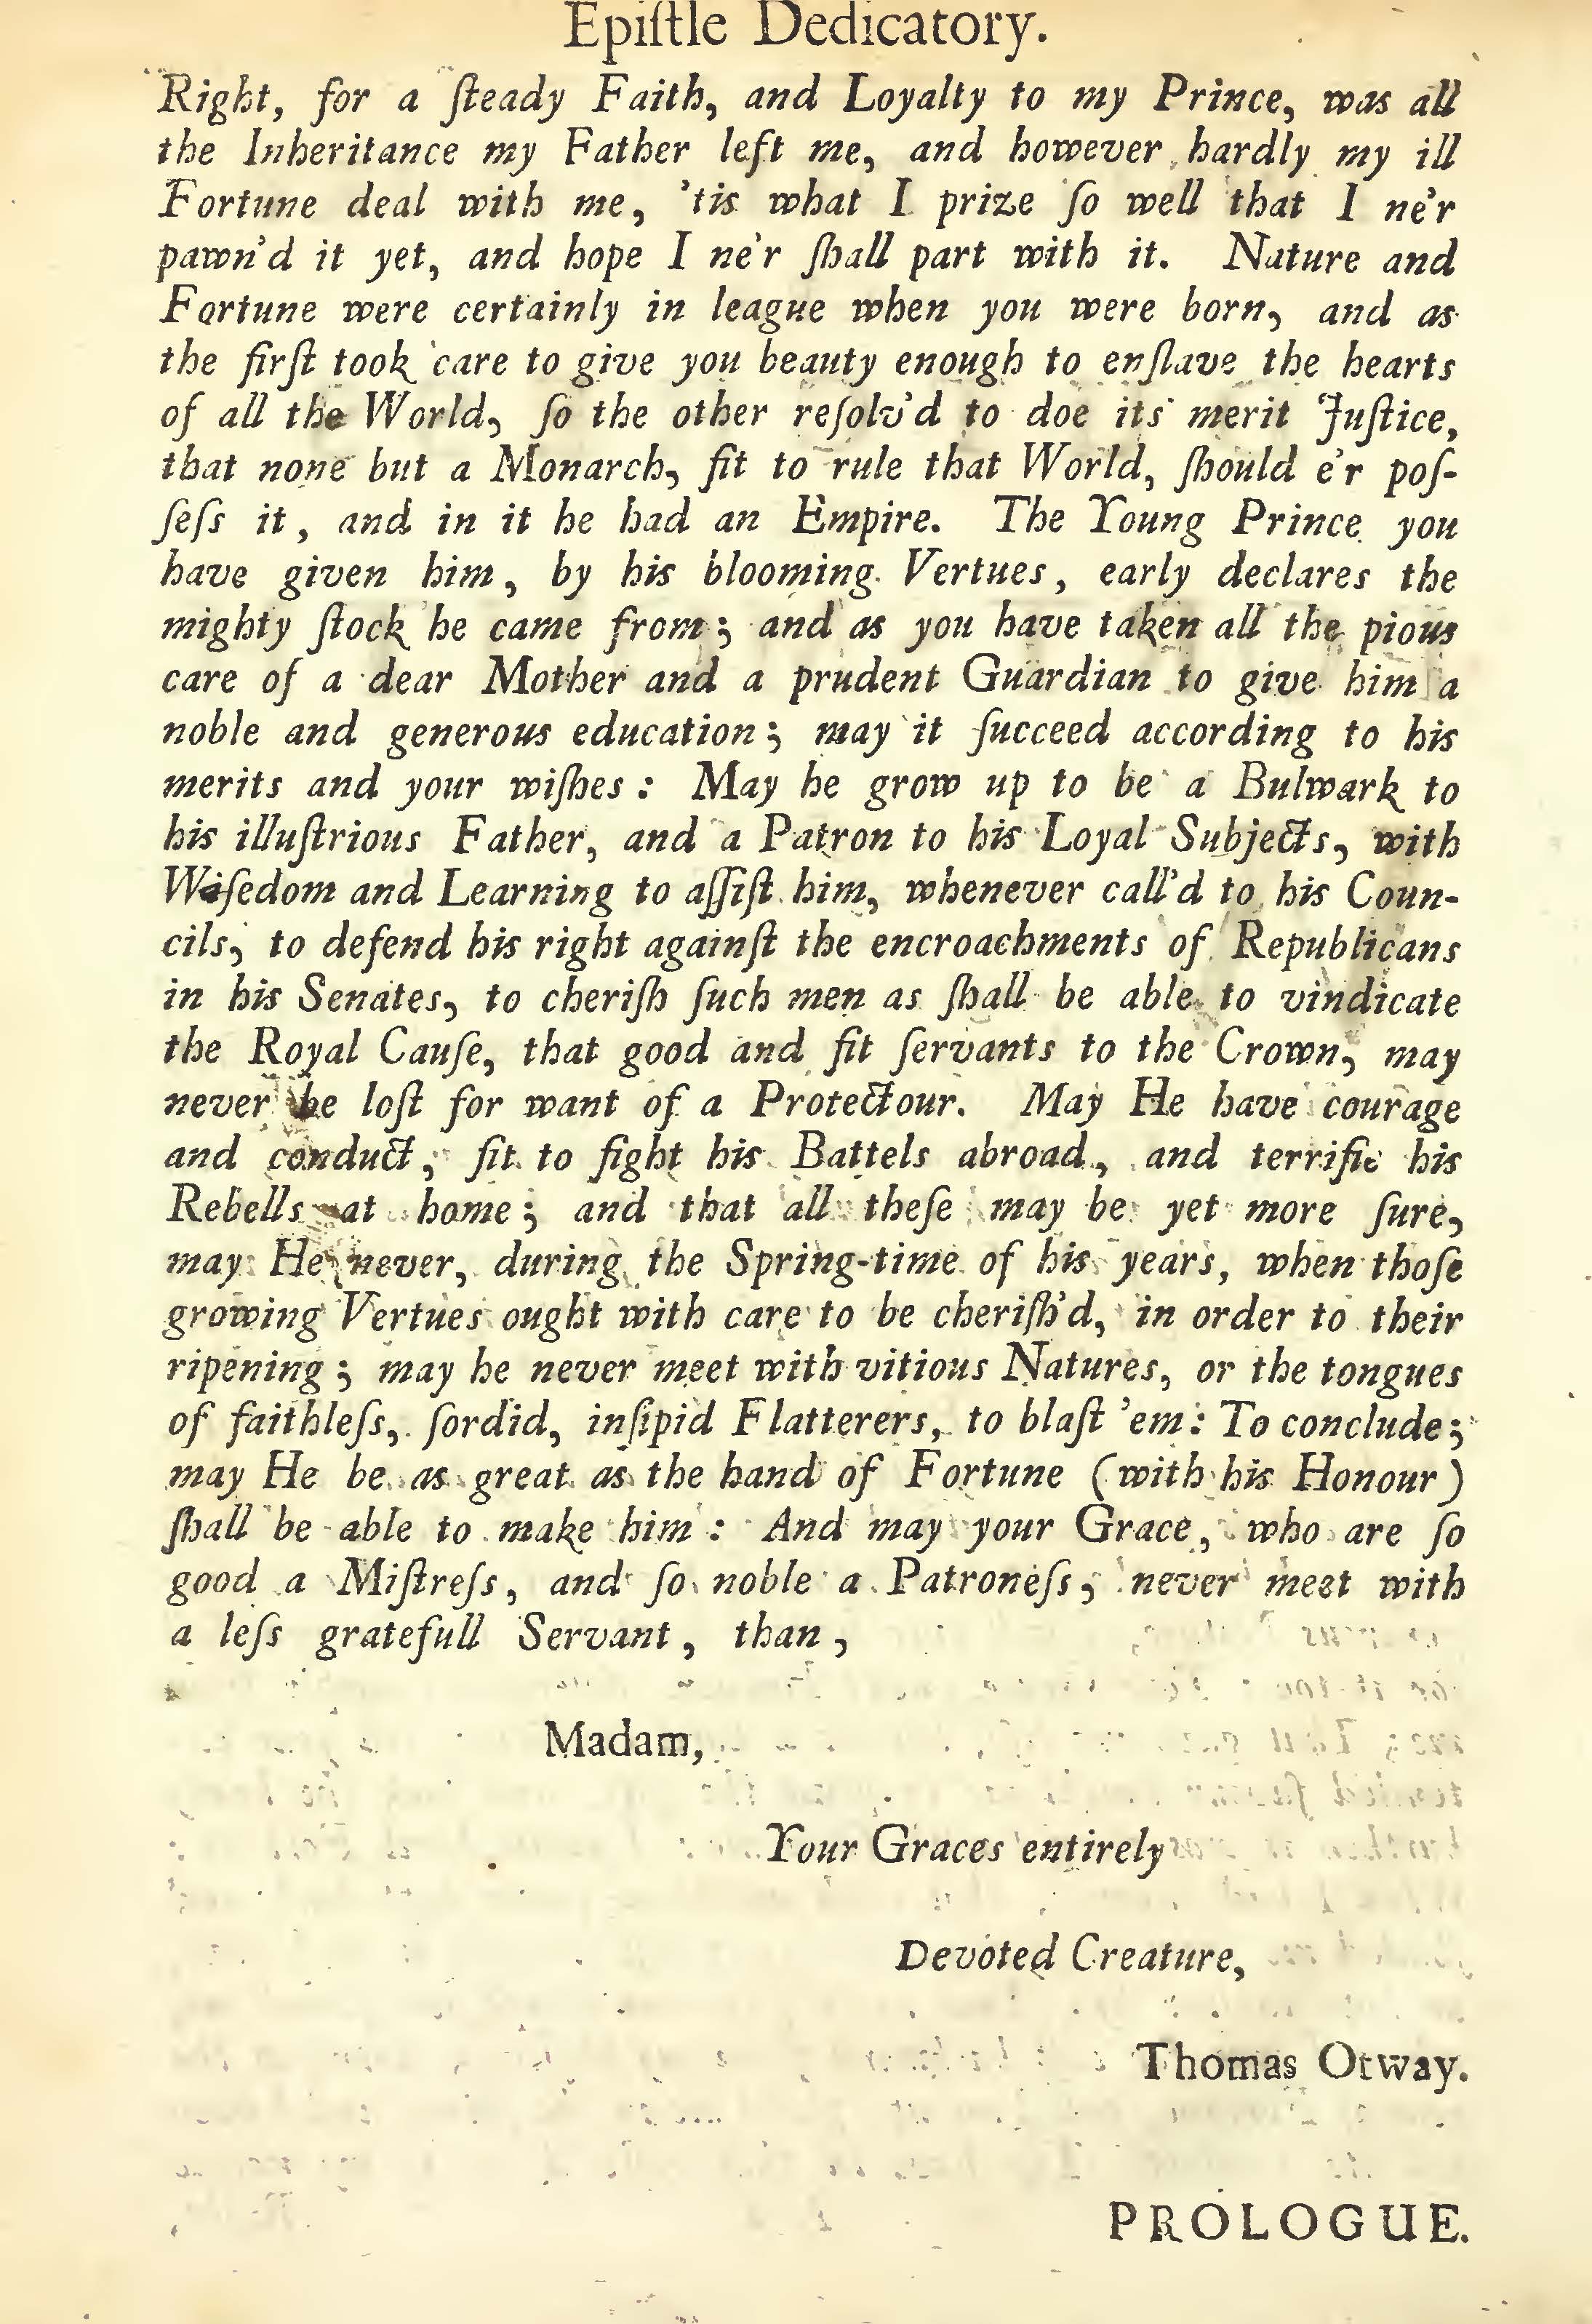 Epiſtle Dedicatory.
Right, for a ſteady Faith, and Loyalty to my Prince, was all
the Inheritance my Father left me, and however hardly my ill
Fortune deal with me, 'tis what I prize ſo well that I ne'r
pawn'd it yet, and hope I ne'r ſhall part with it. Nature and
Fortune were certainly in league when you were born, and as
the firſt took care to give you beauty enough to enſlave the hearts
of all the World, ſo the other reſolv'd to doe its merit Juſtice,
that none but a Monarch, fit to rule that World, ſhould e'r poſ-
ſeſs it, and in it he had an Empire. The Young Prince you
have given him, by his blooming Vertues, early declares the
mighty ſtock he came from; and as you have taken all the pious
care of a dear Mother and a prudent Guardian to give him a
noble and generous education; may it ſucceed according to his
merits and your wiſhes: May he grow up to be a Bulwark to
his illuſtrious Father, and a Patron to his Loyal Subjects, with
Wiſedom and Learning to aſſiſt him, whenever call'd to his Coun-
cils, to defend his right againſt the encroachments of Republicans
in his Senates, to cheriſh ſuch men as ſhall be able to vindicate
the Royal Cauſe, that good and fit ſervants to the Crown, may
never be loſt for want of a Protectour. May He have courage
and conduct, fit to fight his Battels abroad, and terrifie his
Rebells at home; and that all theſe may be yet more ſure,
may He never, during the Spring-time of his years, when thoſe
growing Vertues ought with care to be cheriſh'd, in order to their
ripening; may he never meet with vitious Natures, or the tongues
of faithleſs, ſordid, inſipid Flatterers, to blaſt 'em: To conclude;
may He be as great as the hand of Fortune (with his Honour)
ſhall be able to make him: And may your Grace, who are ſo
good a Miſtreſs, and ſo noble a Patroneſs, never meet with
a leſs gratefull Servant, than,
Madam,
Your Graces entirely
Devoted Creature,
Thomas Otway.
PROLOGUE.